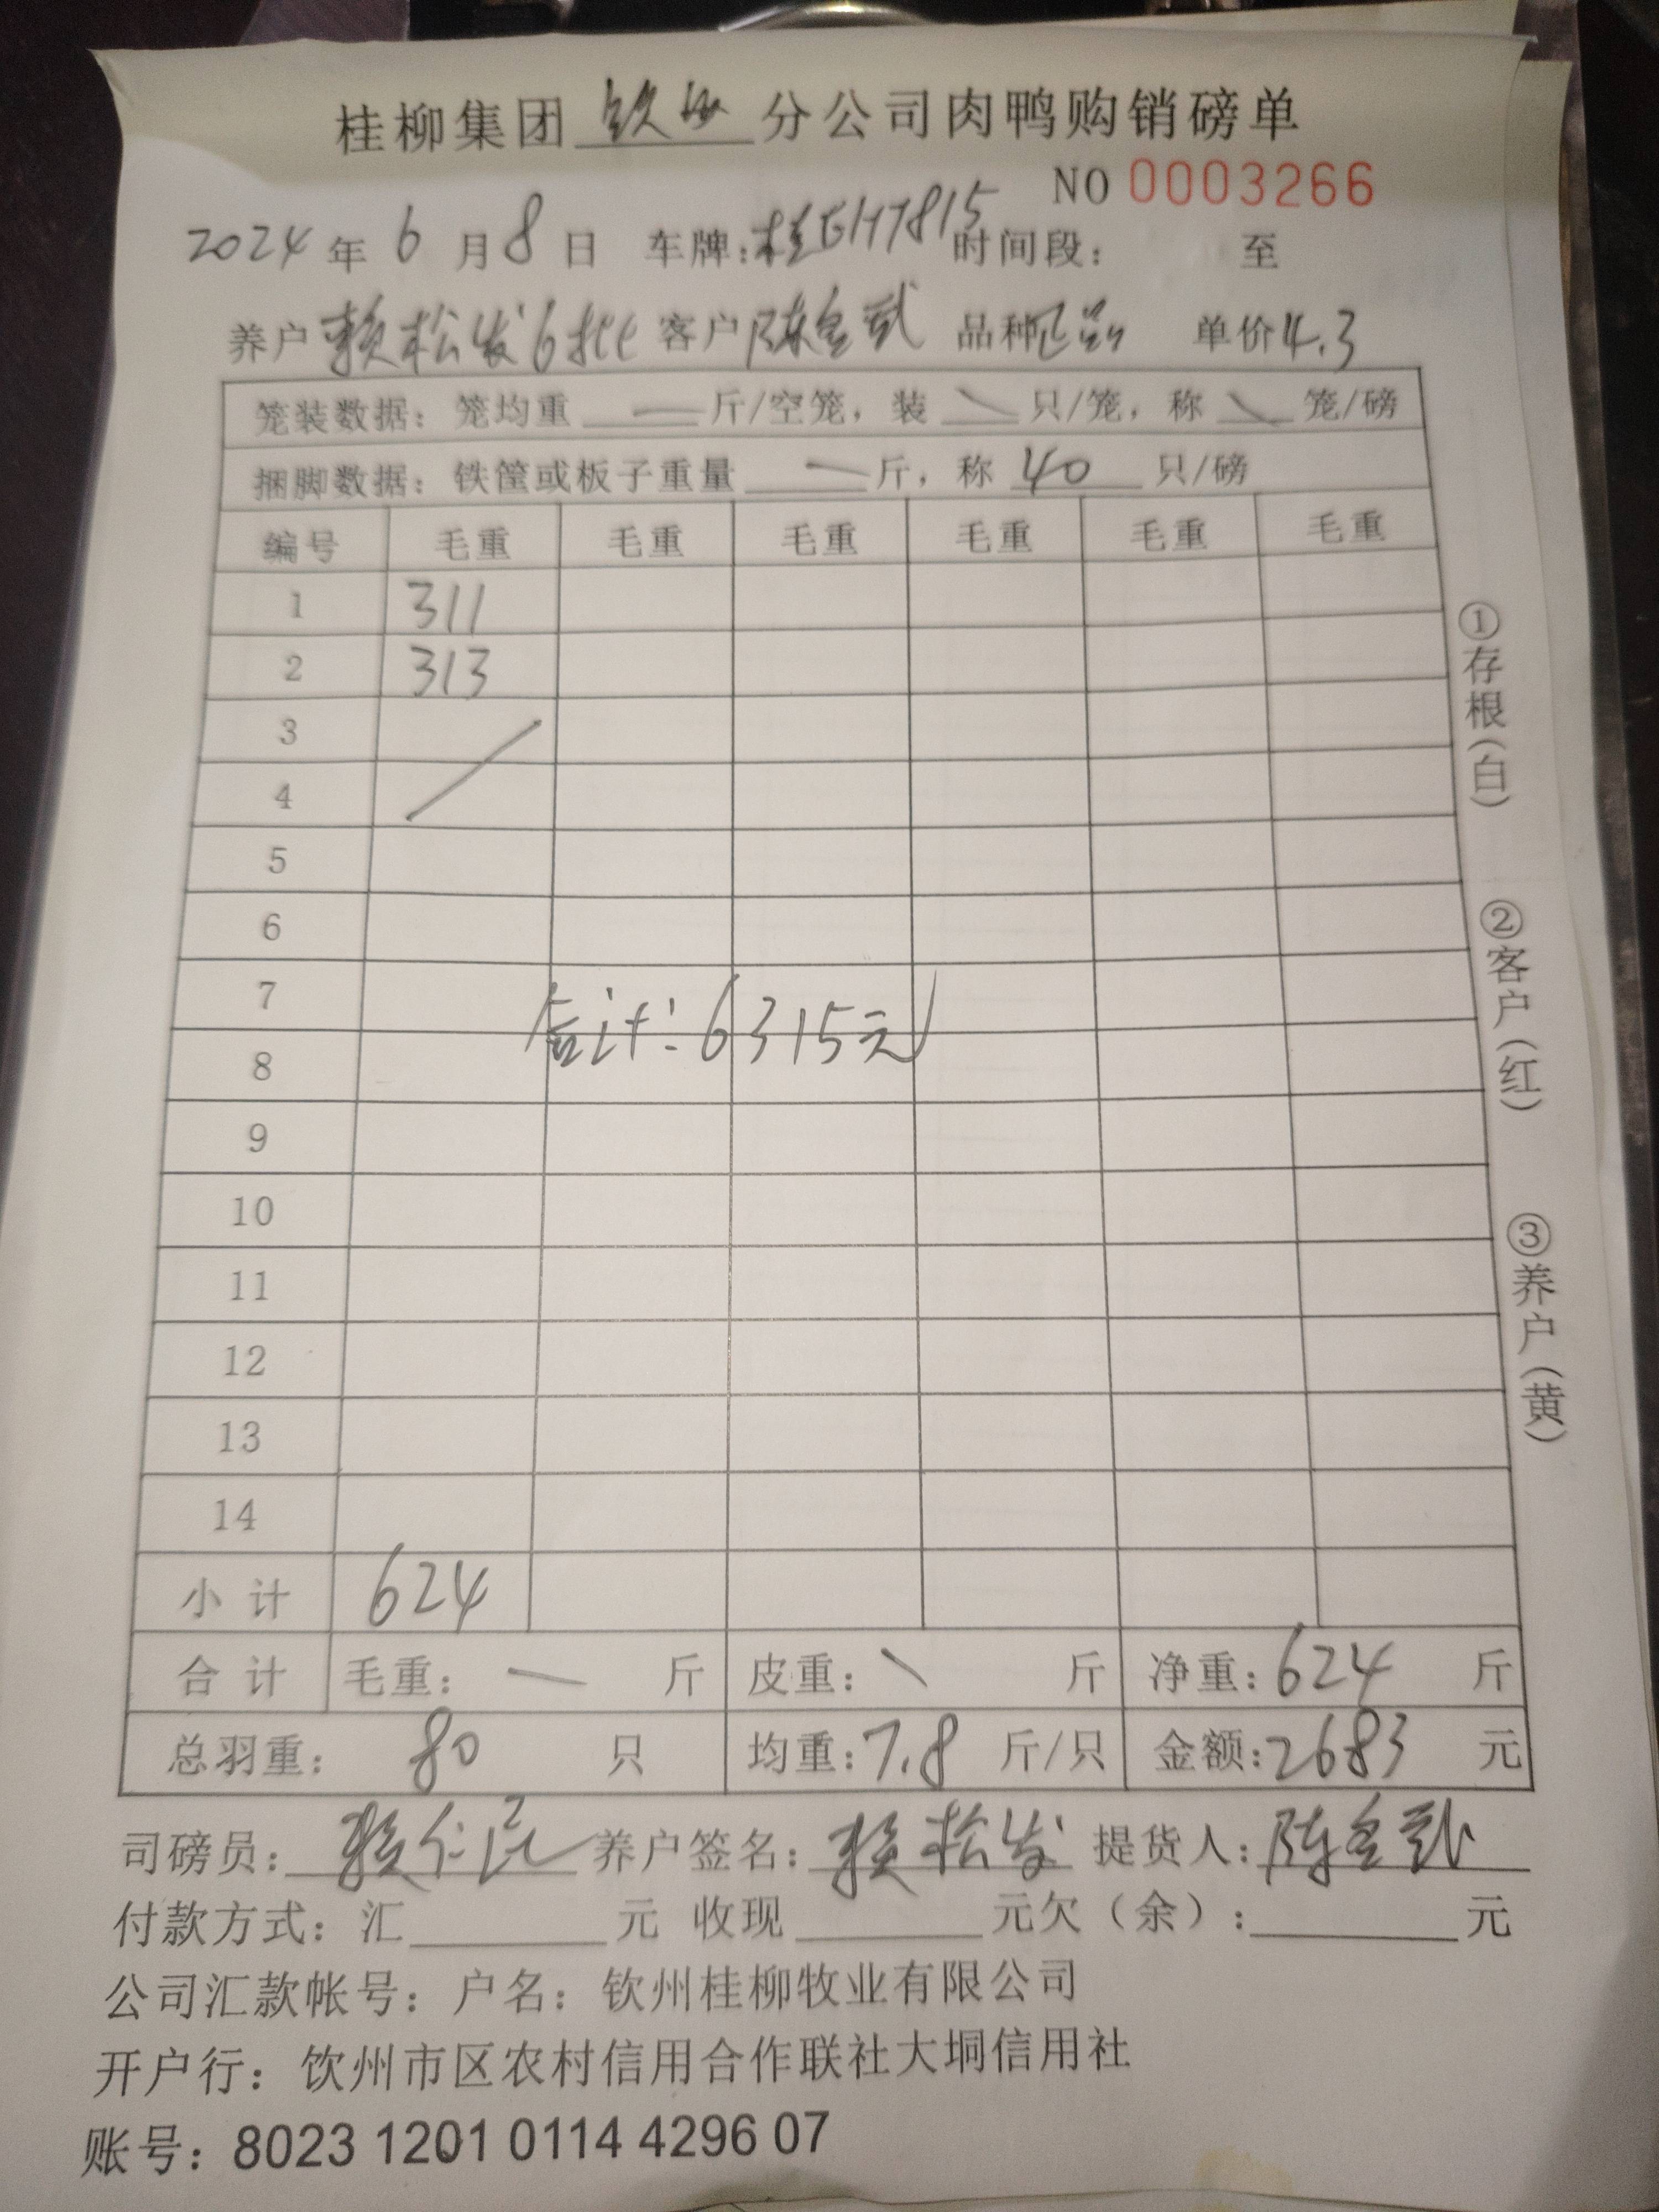 桂柳集团 钦州 分公司肉鸭购销磅单
NO 0003266
2024 年 6 月 8 日 车牌：桂EH7815 时间段： 至
养户 赖松发6批 客户 陈金武 品种 单价 4.3
笼装数据：笼均重 — 斤/空笼，装 \ 只/笼，称 \ 笼/磅
捆脚数据：铁筐或板子重量 — 斤，称 40 只/磅
编号 毛重 毛重 毛重 毛重 毛重 毛重
1 311
2 313
3
4
5
6
7
合计：6315元
8
9
10
11
12
13
14
小计 624
合计 毛重： — 斤 皮重： \ 斤 净重：624 斤
总羽重： 80 只 均重：7.8 斤/只 金额：2683 元
司磅员：赖仁民 养户签名：赖松发 提货人：陈金武
付款方式：汇 元 收现 元欠（余）： 元
公司汇款帐号：户名：钦州桂柳牧业有限公司
开户行：饮州市区农村信用合作联社大垌信用社
账号：8023 1201 0114 4296 07
①存根（白）
②客户（红）
③养户（黄）